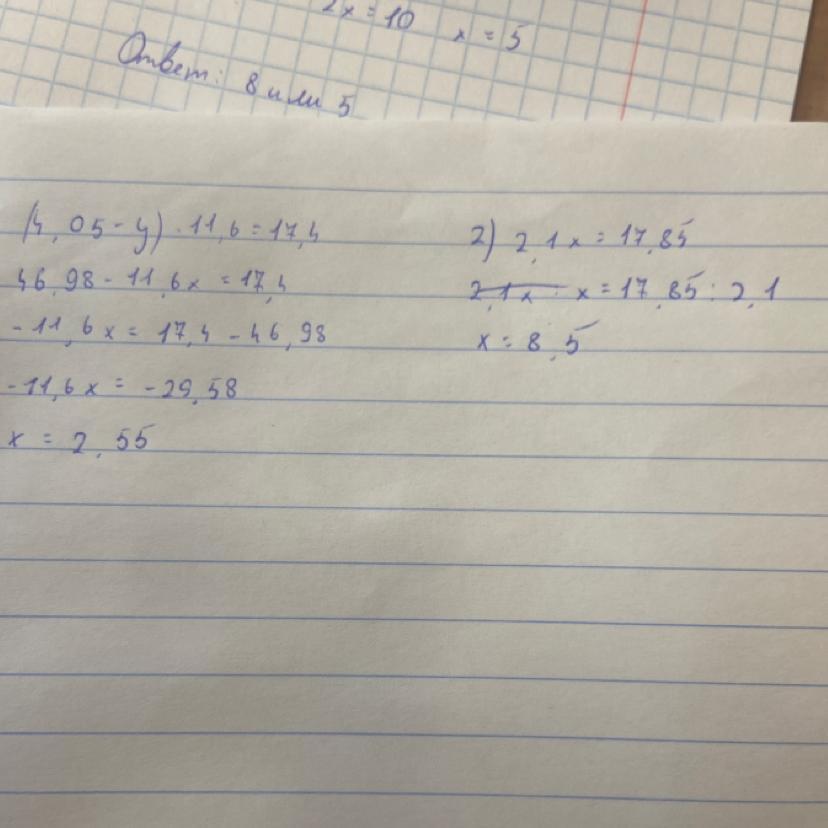 2x = 10 x = 5
Ответ: 8 или 5
(4,05 - y) · 11,6 = 17,4
46,98 - 11,6x = 17,4
-11,6x = 17,4 - 46,98
-11,6x = -29,58
x = 2,55
2) 2,1x = 17,85
2,1x · x = 17,85 : 2,1
x = 8,5